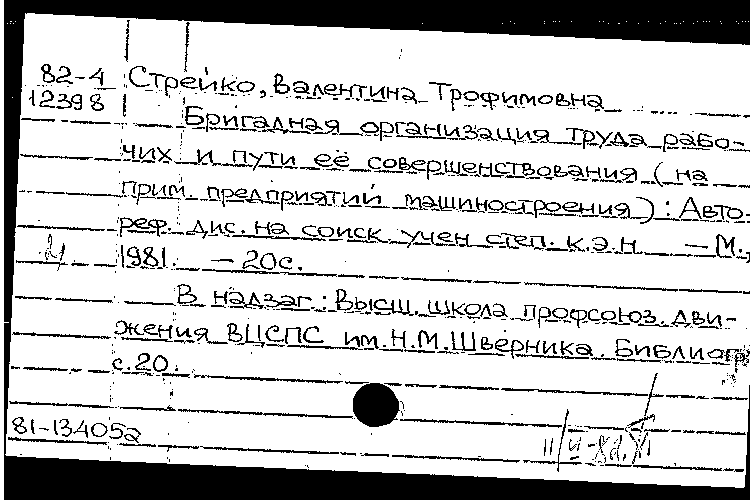 82-4
12398
Стрейко, Валентина Трофимовна
Бригадная организация труда рабо-
чих и пути её совершенствования (на
прим. предприятий машиностроения): Авто-
реф. дис. на соиск. учен степ. к.э.н. — М.,
1981. — 20с.
В надзаг.: Высш. школа профсоюз. дви-
жения ВЦСПС им. Н.М. Шверника. Библиогр
с. 20.
81-134052